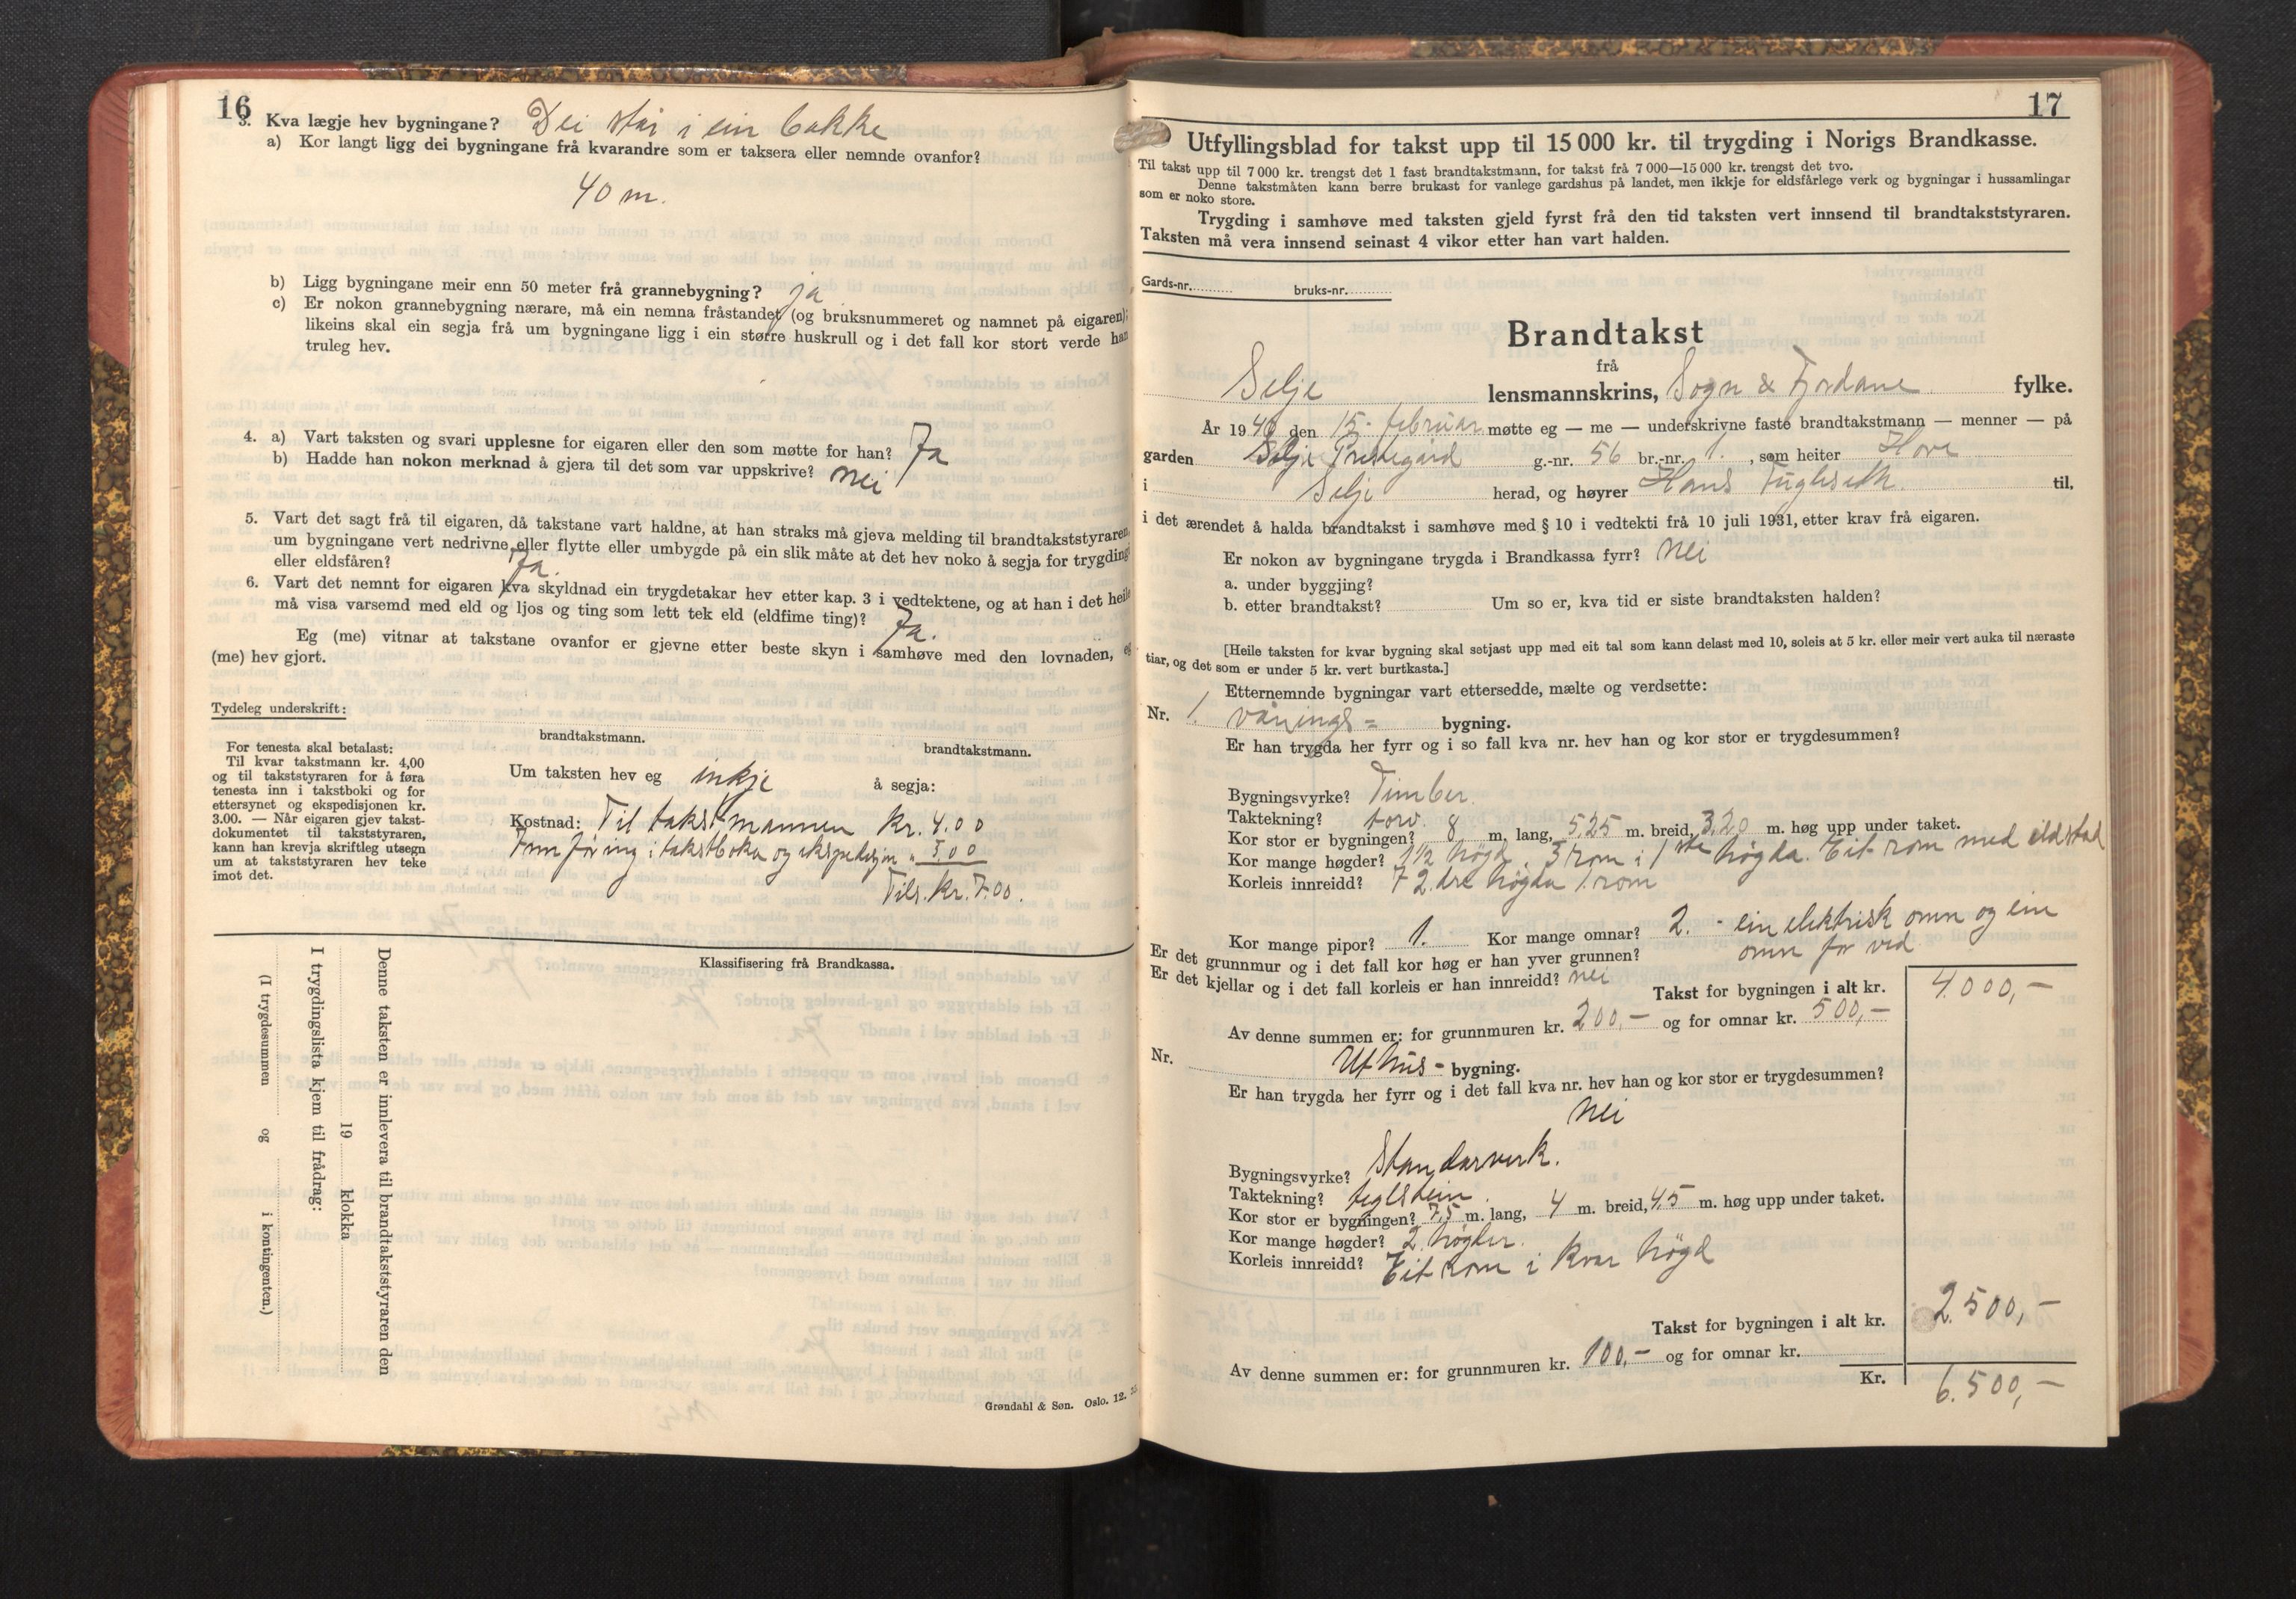 16
3. Kva lægje hev bygningane? Dei står i ein bakke
a) Kor langt ligg dei bygningane frå kvarandre som er taksera eller nemnde ovanfor?
40 m.
b) Ligg bygningane meir enn 50 meter frå grannebygning? ja
c) Er nokon grannebygning nærare, må ein nemna fråstandet (og bruksnummeret og namnet på eigaren);
likeins skal ein segja frå um bygningane ligg i ein større huskrull og i det fall kor stort verde han
truleg hev.
4. a) Vart taksten og svari upplesne for eigaren eller den som møtte for han? Ja
b) Hadde han nokon merknad å gjera til det som var uppskrive? nei
5. Vart det sagt frå til eigaren, då takstane vart haldne, at han straks må gjeva melding til brandtakststyraren,
um bygningane vert nedrivne eller flytte eller umbygde på ein slik måte at det hev noko å segja for trygding
eller eldsfåren? Ja.
6. Vart det nemnt for eigaren kva skyldnad ein trygdetakar hev etter kap. 3 i vedtektene, og at han i det heile
må visa varsemd med eld og ljos og ting som lett tek eld (eldfime ting)? Ja.
Eg (me) vitnar at takstane ovanfor er gjevne etter beste skyn i samhøve med den lovnaden, eg
(me) hev gjort.
Tydeleg underskrift:
brandtakstmann. brandtakstmann.
For tenesta skal betalast:
Til kvar takstmann kr. 4,00
og til takststyraren for å føra
tenesta inn i takstboki og for
ettersynet og ekspedisjonen kr.
3.00. — Når eigaren gjev takst-
dokumentet til takststyraren,
kann han krevja skriftleg utsegn
um at takststyraren hev teke
imot det.
Um taksten hev eg inkje å segja:
Kostnad: Til takstmannen kr. 4.00
Innføring i takstboka og ekspedisjon " 3.00
Tils. kr. 7.00.
Klassifisering frå Brandkassa.
Denne taksten er innlevera til brandtakststyraren den
19 klokka
I trygdingslista kjem til frådrag:
(I trygdesummen og i kontingenten.)
Grøndahl & Søn. Oslo. 12.
17
Utfyllingsblad for takst upp til 15 000 kr. til trygding i Norigs Brandkasse.
Til takst upp til 7 000 kr. trengst det 1 fast brandtakstmann, for takst frå 7 000—15 000 kr. trengst det tvo.
Denne takstmåten kann berre brukast for vanlege gardshus på landet, men ikkje for eldsfårlege verk og bygningar i hussamlingar
som er noko store.
Trygding i samhøve med taksten gjeld fyrst frå den tid taksten vert innsend til brandtakststyraren.
Taksten må vera innsend seinast 4 vikor etter han vart halden.
Gards-nr. bruks-nr.
Brandtakst
frå
Selje lensmannskrins, Sogn & Fjordane fylke.
År 1940 den 15. februar møtte eg — me — underskrivne faste brandtakstmann — menner — på
garden Selje Prestegard g.-nr. 56 br.-nr. 1. , som heiter Hove
i Selje herad, og høyrer Hans Fuglseth til,
i det ærendet å halda brandtakst i samhøve med § 10 i vedtekti frå 10 juli 1931, etter krav frå eigaren.
Er nokon av bygningane trygda i Brandkassa fyrr? Nei
a. under byggjing?
b. etter brandtakst? Um so er, kva tid er siste brandtaksten halden?
[Heile taksten for kvar bygning skal setjast upp med eit tal som kann delast med 10, soleis at 5 kr. eller meir vert auka til næraste
tiar, og det som er under 5 kr. vert burtkasta.]
Etternemnde bygningar vart ettersedde, mælte og verdsette:
Nr. 1. vånings= bygning.
Er han trygda her fyrr og i so fall kva nr. hev han og kor stor er trygdesummen?
Bygningsvyrke? Timber.
Taktekning? torv.
Kor stor er bygningen? 8 m. lang, 5,25 m. breid, 3,20 m. høg upp under taket.
Kor mange høgder? 1½ høgd. 3 rom i 1ste høgda. Eit rom med eldstad
Korleis innreidd? I 2.dre høgda 1 rom
Kor mange pipor? 1. Kor mange omnar? 2. - ein elektrisk omn og ein
omn for ved
Er det grunnmur og i det fall kor høg er han yver grunnen?
Er det kjellar og i det fall korleis er han innreidd? nei
Takst for bygningen i alt kr. 4.000,-
Av denne summen er: for grunnmuren kr. 200,- og for omnar kr. 500,-
Nr. Uthus- bygning.
Er han trygda her fyrr og i det fall kva nr. hev han og kor stor er trygdesummen?
Nei
Bygningsvyrke? Standarverk.
Taktekning? teglstein.
Kor stor er bygningen? 7,5 m. lang, 4 m. breid, 4,5 m. høg upp under taket.
Kor mange høgder? 2 høgder.
Korleis innreidd? Eit rom i kvar høgd
Takst for bygningen i alt kr. 2.500,-
Av denne summen er: for grunnmuren kr. 100,- og for omnar kr.
Kr. 6.500,-